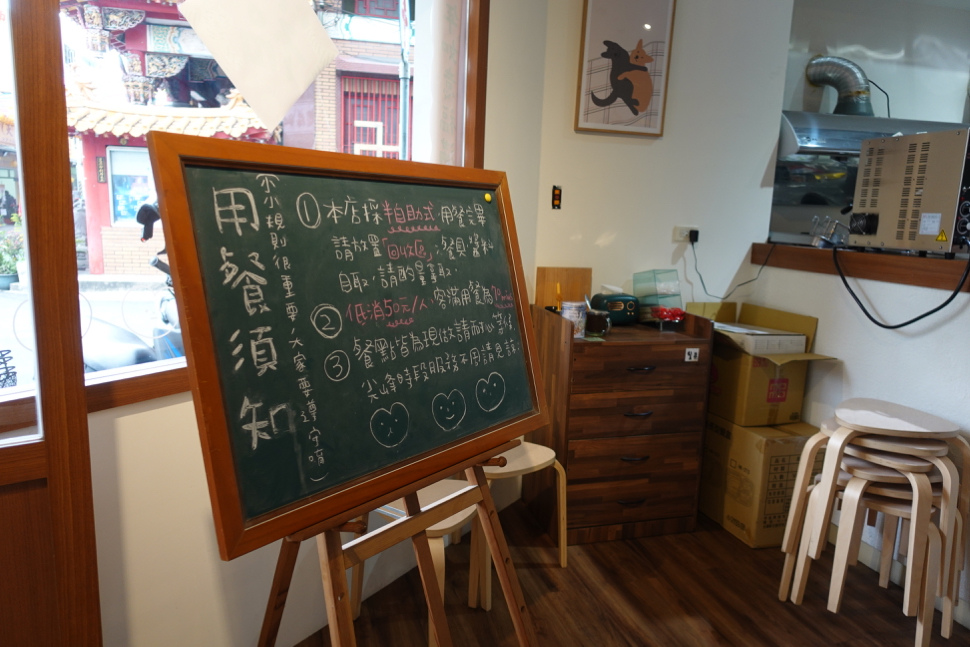 用餐須知
(小小規則很重要,大家要遵守唷)
①本店採半自助式,用餐完畢
請放置「回收區」,餐具、醬料
自取,請酌量拿取.
②低消50元/人、客滿用餐為
③餐點皆為現做請耐心等候,
尖峰時段服務不周請見諒.